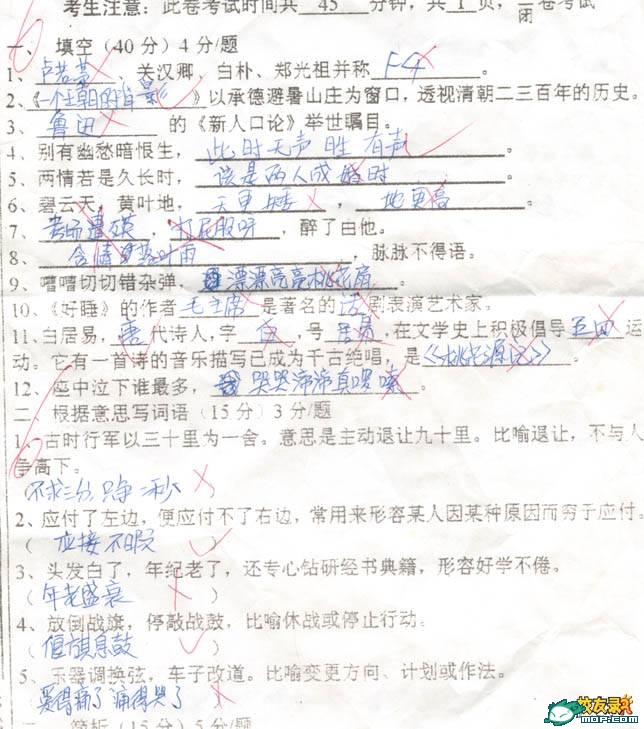 考生注意：此卷考试时间共 45 分钟，共 1 页，闭卷考试
一、填空（40分）4分/题
1、卢若藁，关汉卿，白朴、郑光祖并称 F4 。
2、《一个王朝的背影》以承德避暑山庄为窗口，透视清朝二三百年的历史。
3、鲁迅 的《新人口论》举世瞩目。
4、别有幽愁暗恨生，此时无声胜有声 。
5、两情若是久长时，该是两人成婚时 。
6、碧云天，黄叶地，天更矮，地更高 。
7、考场遭殃，打屁股呀，醉了由他。
8、含情梦落叶雨，脉脉不得语。
9、嘈嘈切切错杂弹，漂漂亮亮桃花扇 。
10、《好睡》的作者毛主席是著名的话剧表演艺术家。
11、白居易，唐代诗人，字白，号居易，在文学史上积极倡导五四运
动。它有一首诗的音乐描写已成为千古绝唱，是《桃花源记》。
12、座中泣下谁最多，哭哭啼啼真啰嗦 。
二 根据意思写词语（15分）3分/题
1、古时行军以三十里为一舍。意思是主动退让九十里。比喻退让，不与人
争高下。
（不求三分，只争二秒）
2、应付了左边，便应付不了右边，常用来形容某人因某种原因而穷于应付。
（应接不暇）
3、头发白了，年纪老了，还专心钻研经书典籍，形容好学不倦。
（年老盛衰）
4、放倒战旗，停敲战鼓，比喻休战或停止行动。
（偃旗息鼓）
5、乐器调换弦，车子改道。比喻变更方向、计划或作法。
哭得痛了痛得哭了）
简析（15分）5分/题
猫友录
MOP.COM